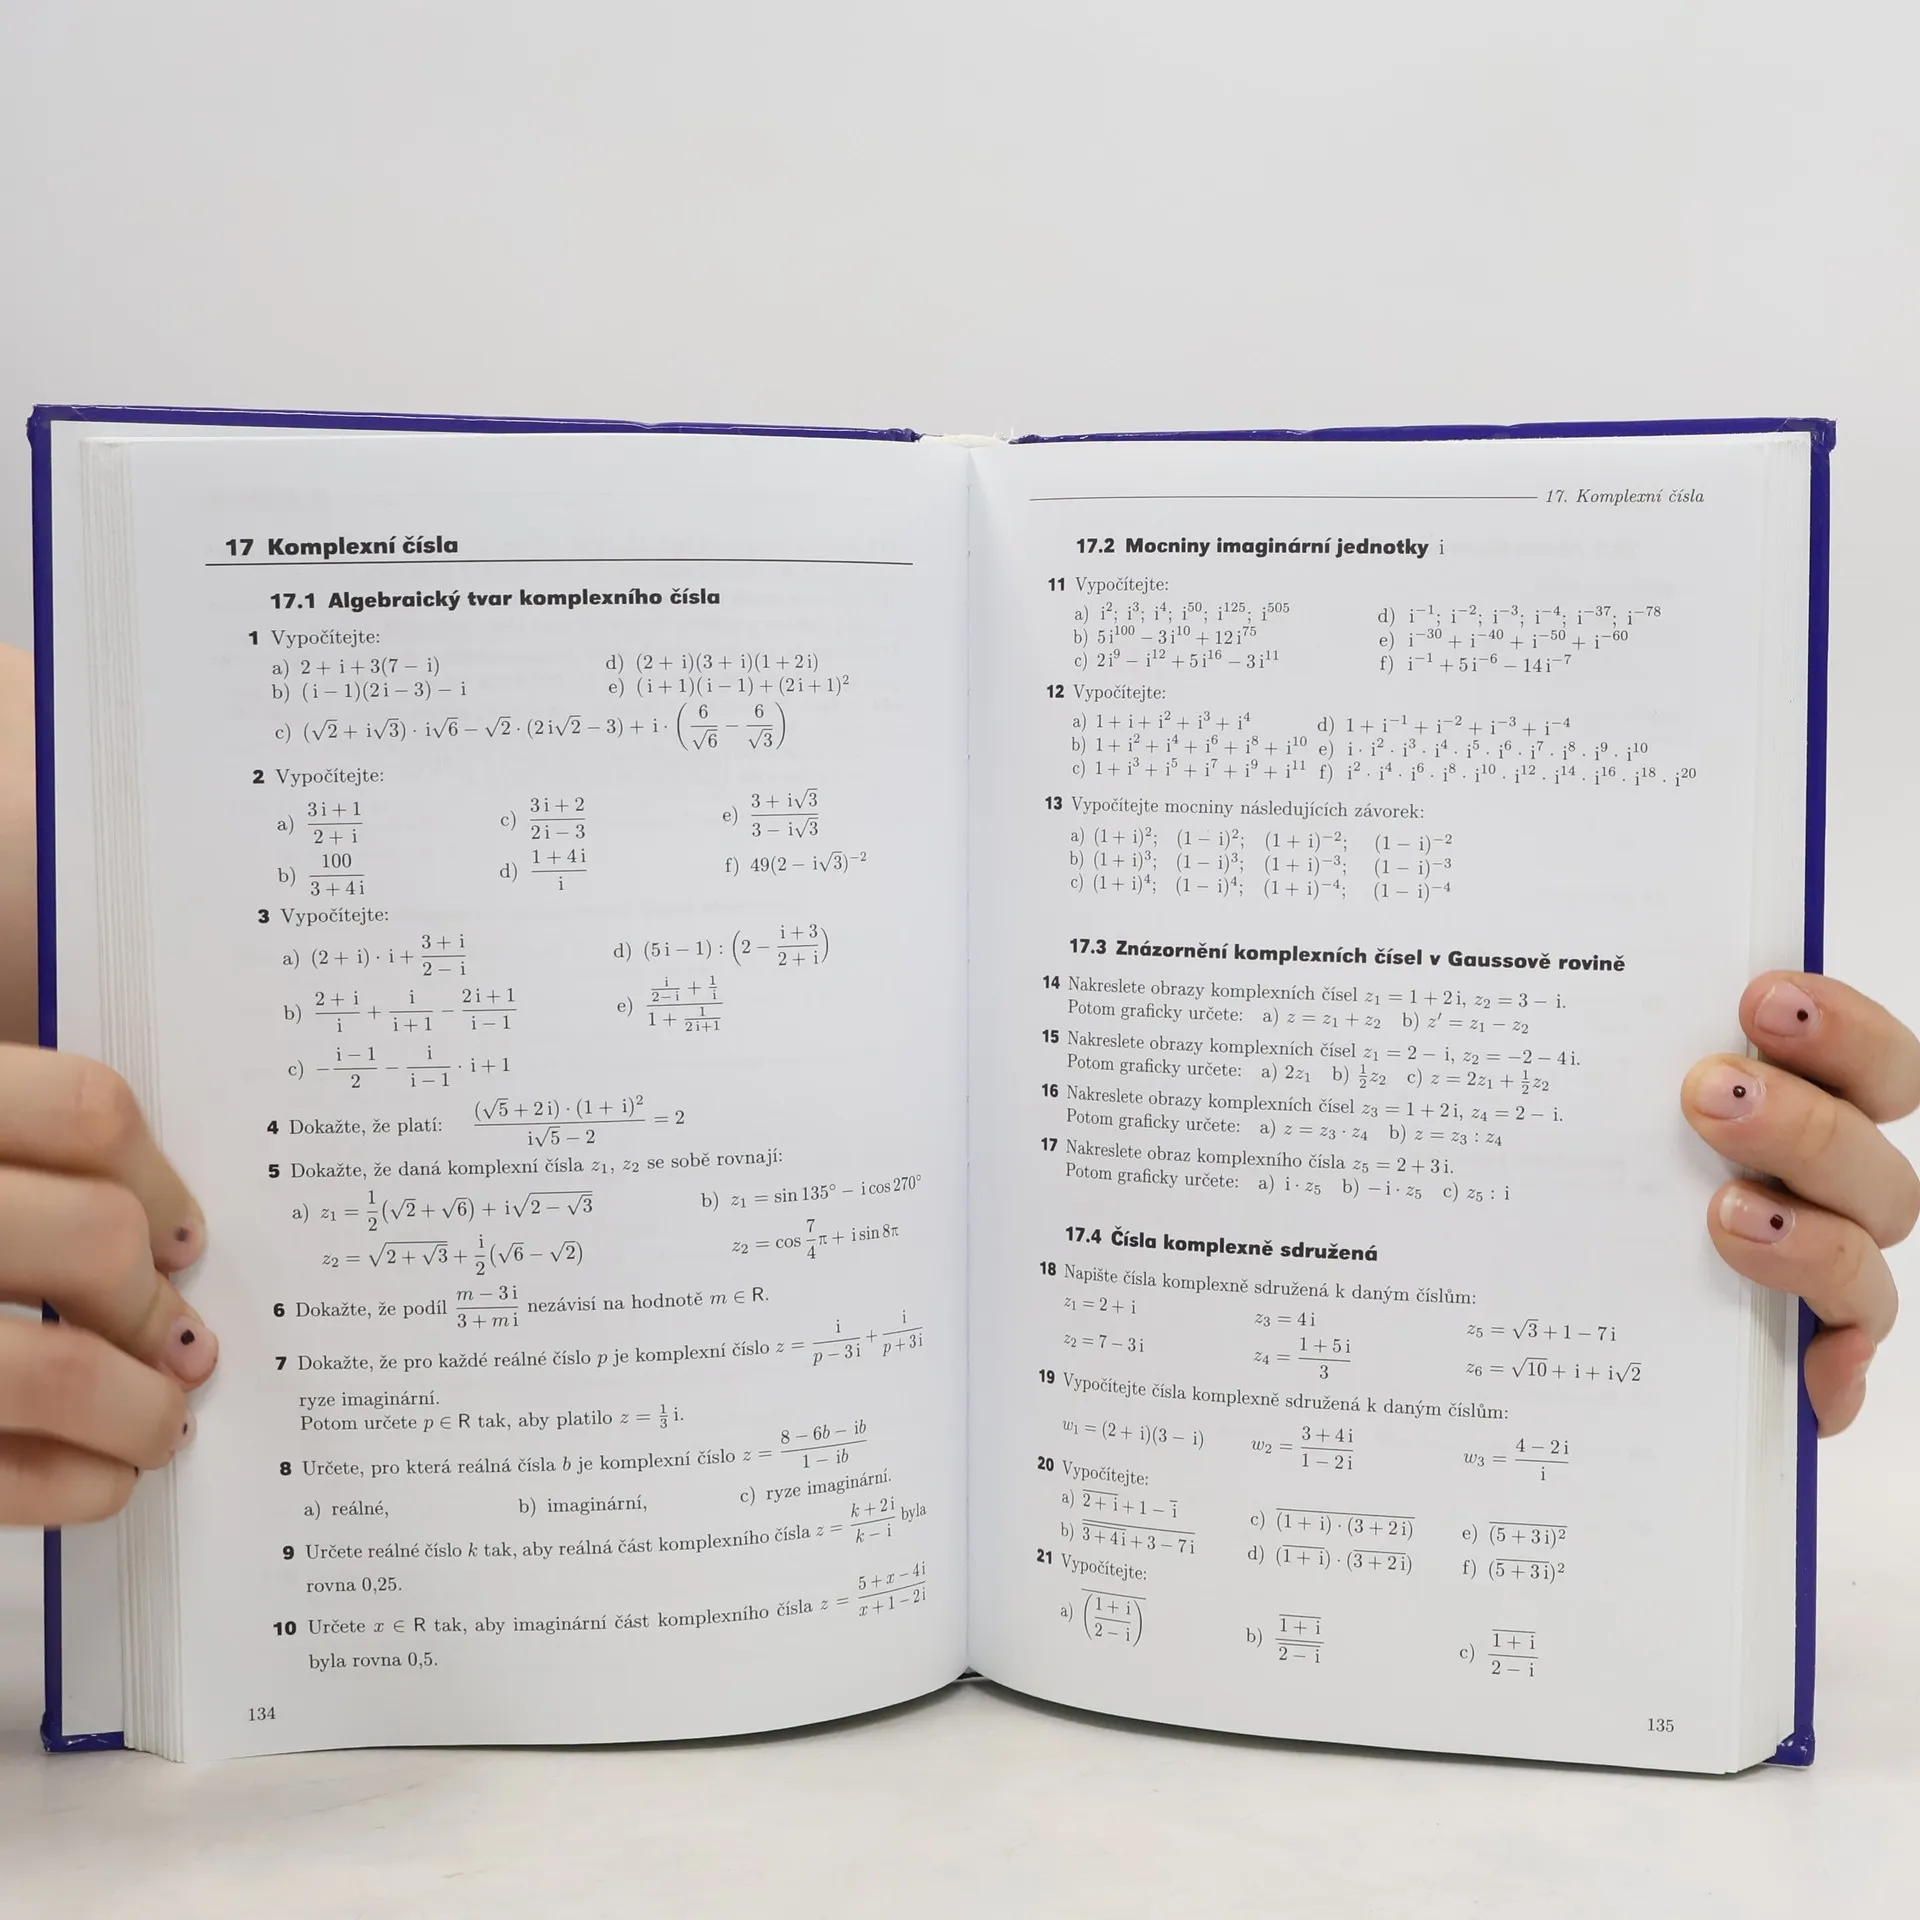 17 Komplexní čísla
17.1 Algebraický tvar komplexního čísla
1 Vypočítejte:
a) 2 + i + 3(7 − i) d) (2 + i)(3 + i)(1 + 2i)
b) (i − 1)(2i − 3) − i e) (i + 1)(i − 1) + (2i + 1)²
c) (√2 + i√3) · i√6 − √2 · (2i√2 − 3) + i · (6/√6 − 6/√3)
2 Vypočítejte:
a) (3i + 1)/(2 + i) c) (3i + 2)/(2i − 3) e) (3 + i√3)/(3 − i√3)
b) 100/(3 + 4i) d) (1 + 4i)/i f) 49(2 − i√3)⁻²
3 Vypočítejte:
a) (2 + i) · i + (3 + i)/(2 − i) d) (5i − 1) : (2 − (i + 3)/(2 + i))
b) (2 + i)/i + i/(i + 1) − (2i + 1)/(i − 1) e) (i/(2−i) + 1/i)/(1 + 1/(2i+1))
c) −(i − 1)/2 − i/(i − 1) · i + 1
4 Dokažte, že platí: ((√5 + 2i) · (1 + i)²)/(i√5 − 2) = 2
5 Dokažte, že daná komplexní čísla z₁, z₂ se sobě rovnají:
a) z₁ = 1/2(√2 + √6) + i√(2 − √3) b) z₁ = sin 135° − i cos 270°
z₂ = √(2 + √3) + i/2(√6 − √2) z₂ = cos 7/4π + i sin 8π
6 Dokažte, že podíl (m − 3i)/(3 + mi) nezávisí na hodnotě m ∈ R.
7 Dokažte, že pro každé reálné číslo p je komplexní číslo z = i/(p − 3i) + i/(p + 3i)
ryze imaginární.
Potom určete p ∈ R tak, aby platilo z = 1/3 i.
8 Určete, pro která reálná čísla b je komplexní číslo z = (8 − 6b − ib)/(1 − ib)
a) reálné, b) imaginární, c) ryze imaginární.
9 Určete reálné číslo k tak, aby reálná část komplexního čísla z = (k + 2i)/(k − i) byla
rovna 0,25.
10 Určete x ∈ R tak, aby imaginární část komplexního čísla z = (5 + x − 4i)/(x + 1 − 2i)
byla rovna 0,5.
134
17. Komplexní čísla
17.2 Mocniny imaginární jednotky i
11 Vypočítejte:
a) i²; i³; i⁴; i⁵⁰; i¹²⁵; i⁵⁰⁵ d) i⁻¹; i⁻²; i⁻³; i⁻⁴; i⁻³⁷; i⁻⁷⁸
b) 5i¹⁰⁰ − 3i¹⁰ + 12i⁷⁵ e) i⁻³⁰ + i⁻⁴⁰ + i⁻⁵⁰ + i⁻⁶⁰
c) 2i⁹ − i¹² + 5i¹⁶ − 3i¹¹ f) i⁻¹ + 5i⁻⁶ − 14i⁻⁷
12 Vypočítejte:
a) 1 + i + i² + i³ + i⁴ d) 1 + i⁻¹ + i⁻² + i⁻³ + i⁻⁴
b) 1 + i² + i⁴ + i⁶ + i⁸ + i¹⁰ e) i · i² · i³ · i⁴ · i⁵ · i⁶ · i⁷ · i⁸ · i⁹ · i¹⁰
c) 1 + i³ + i⁵ + i⁷ + i⁹ + i¹¹ f) i² · i⁴ · i⁶ · i⁸ · i¹⁰ · i¹² · i¹⁴ · i¹⁶ · i¹⁸ · i²⁰
13 Vypočítejte mocniny následujících závorek:
a) (1 + i)²; (1 − i)²; (1 + i)⁻²; (1 − i)⁻²
b) (1 + i)³; (1 − i)³; (1 + i)⁻³; (1 − i)⁻³
c) (1 + i)⁴; (1 − i)⁴; (1 + i)⁻⁴; (1 − i)⁻⁴
17.3 Znázornění komplexních čísel v Gaussově rovině
14 Nakreslete obrazy komplexních čísel z₁ = 1 + 2i, z₂ = 3 − i.
Potom graficky určete: a) z = z₁ + z₂ b) z′ = z₁ − z₂
15 Nakreslete obrazy komplexních čísel z₁ = 2 − i, z₂ = −2 − 4i.
Potom graficky určete: a) 2z₁ b) 1/2z₂ c) z = 2z₁ + 1/2z₂
16 Nakreslete obrazy komplexních čísel z₃ = 1 + 2i, z₄ = 2 − i.
Potom graficky určete: a) z = z₃ · z₄ b) z = z₃ : z₄
17 Nakreslete obraz komplexního čísla z₅ = 2 + 3i.
Potom graficky určete: a) i · z₅ b) −i · z₅ c) z₅ : i
17.4 Čísla komplexně sdružená
18 Napište čísla komplexně sdružená k daným číslům:
z₁ = 2 + i z₃ = 4i z₅ = √3 + 1 − 7i
z₂ = 7 − 3i z₄ = (1 + 5i)/3 z₆ = √10 + i + i√2
19 Vypočítejte čísla komplexně sdružená k daným číslům:
w₁ = (2 + i)(3 − i) w₂ = (3 + 4i)/(1 − 2i) w₃ = (4 − 2i)/i
20 Vypočítejte:
a) \overline{2 + i} + 1 − \overline{i} c) \overline{(1 + i) · (3 + 2i)} e) \overline{(5 + 3i)²}
b) \overline{\overline{3 + 4i} + 3 − 7i} d) (\overline{1 + i}) · (\overline{3 + 2i}) f) (\overline{5 + 3i})²
21 Vypočítejte:
a) \overline{((1 + i)/(2 − i))} b) \overline{1 + i}/\overline{\overline{2 − i}} c) \overline{1 + i}/(2 − i)
135